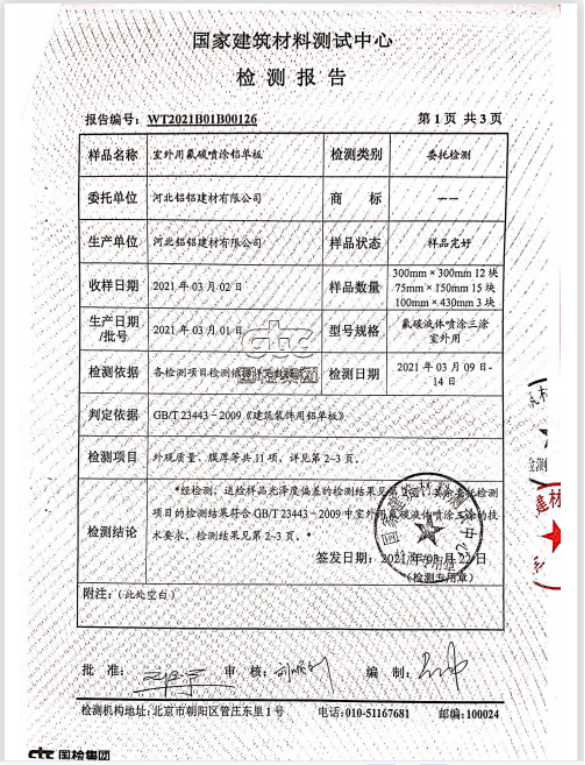 国家建筑材料测试中心
检测报告
报告编号：WT2021B01B00126 第1页 共3页
样品名称 室外用氟碳喷涂铝单板 检测类别 委托检测
委托单位 河北铝铝建材有限公司 商 标 ——
生产单位 河北铝铝建材有限公司 样品状态 样品完好
收样日期 2021年03月02日 样品数量 300mm×300mm 12块
75mm×150mm 15块
100mm×430mm 3块
生产日期/批号 2021年03月01日 型号规格 氟碳液体喷涂三涂
室外用
检测依据 各检测项目检测依据 检测日期 2021年03月09日-
14日
判定依据 GB/T 23443-2009《建筑装饰用铝单板》
检测项目 外观质量、膜厚等共11项，详见第2-3页。
检测结论 *经检测，送检样品光泽度偏差的检测结果见第2页，检测
项目的检测结果符合GB/T 23443-2009中室外用氟碳液体喷涂三涂的技
术要求，检测结果见第2-3页。*
签发日期：2021年03月22日
（检测专用章）
附注：（此处空白）
批 准： 审 核： 编 制：
检测机构地址：北京市朝阳区管庄东里1号 电话：010-51167681 邮编：100024
ctc 国检集团